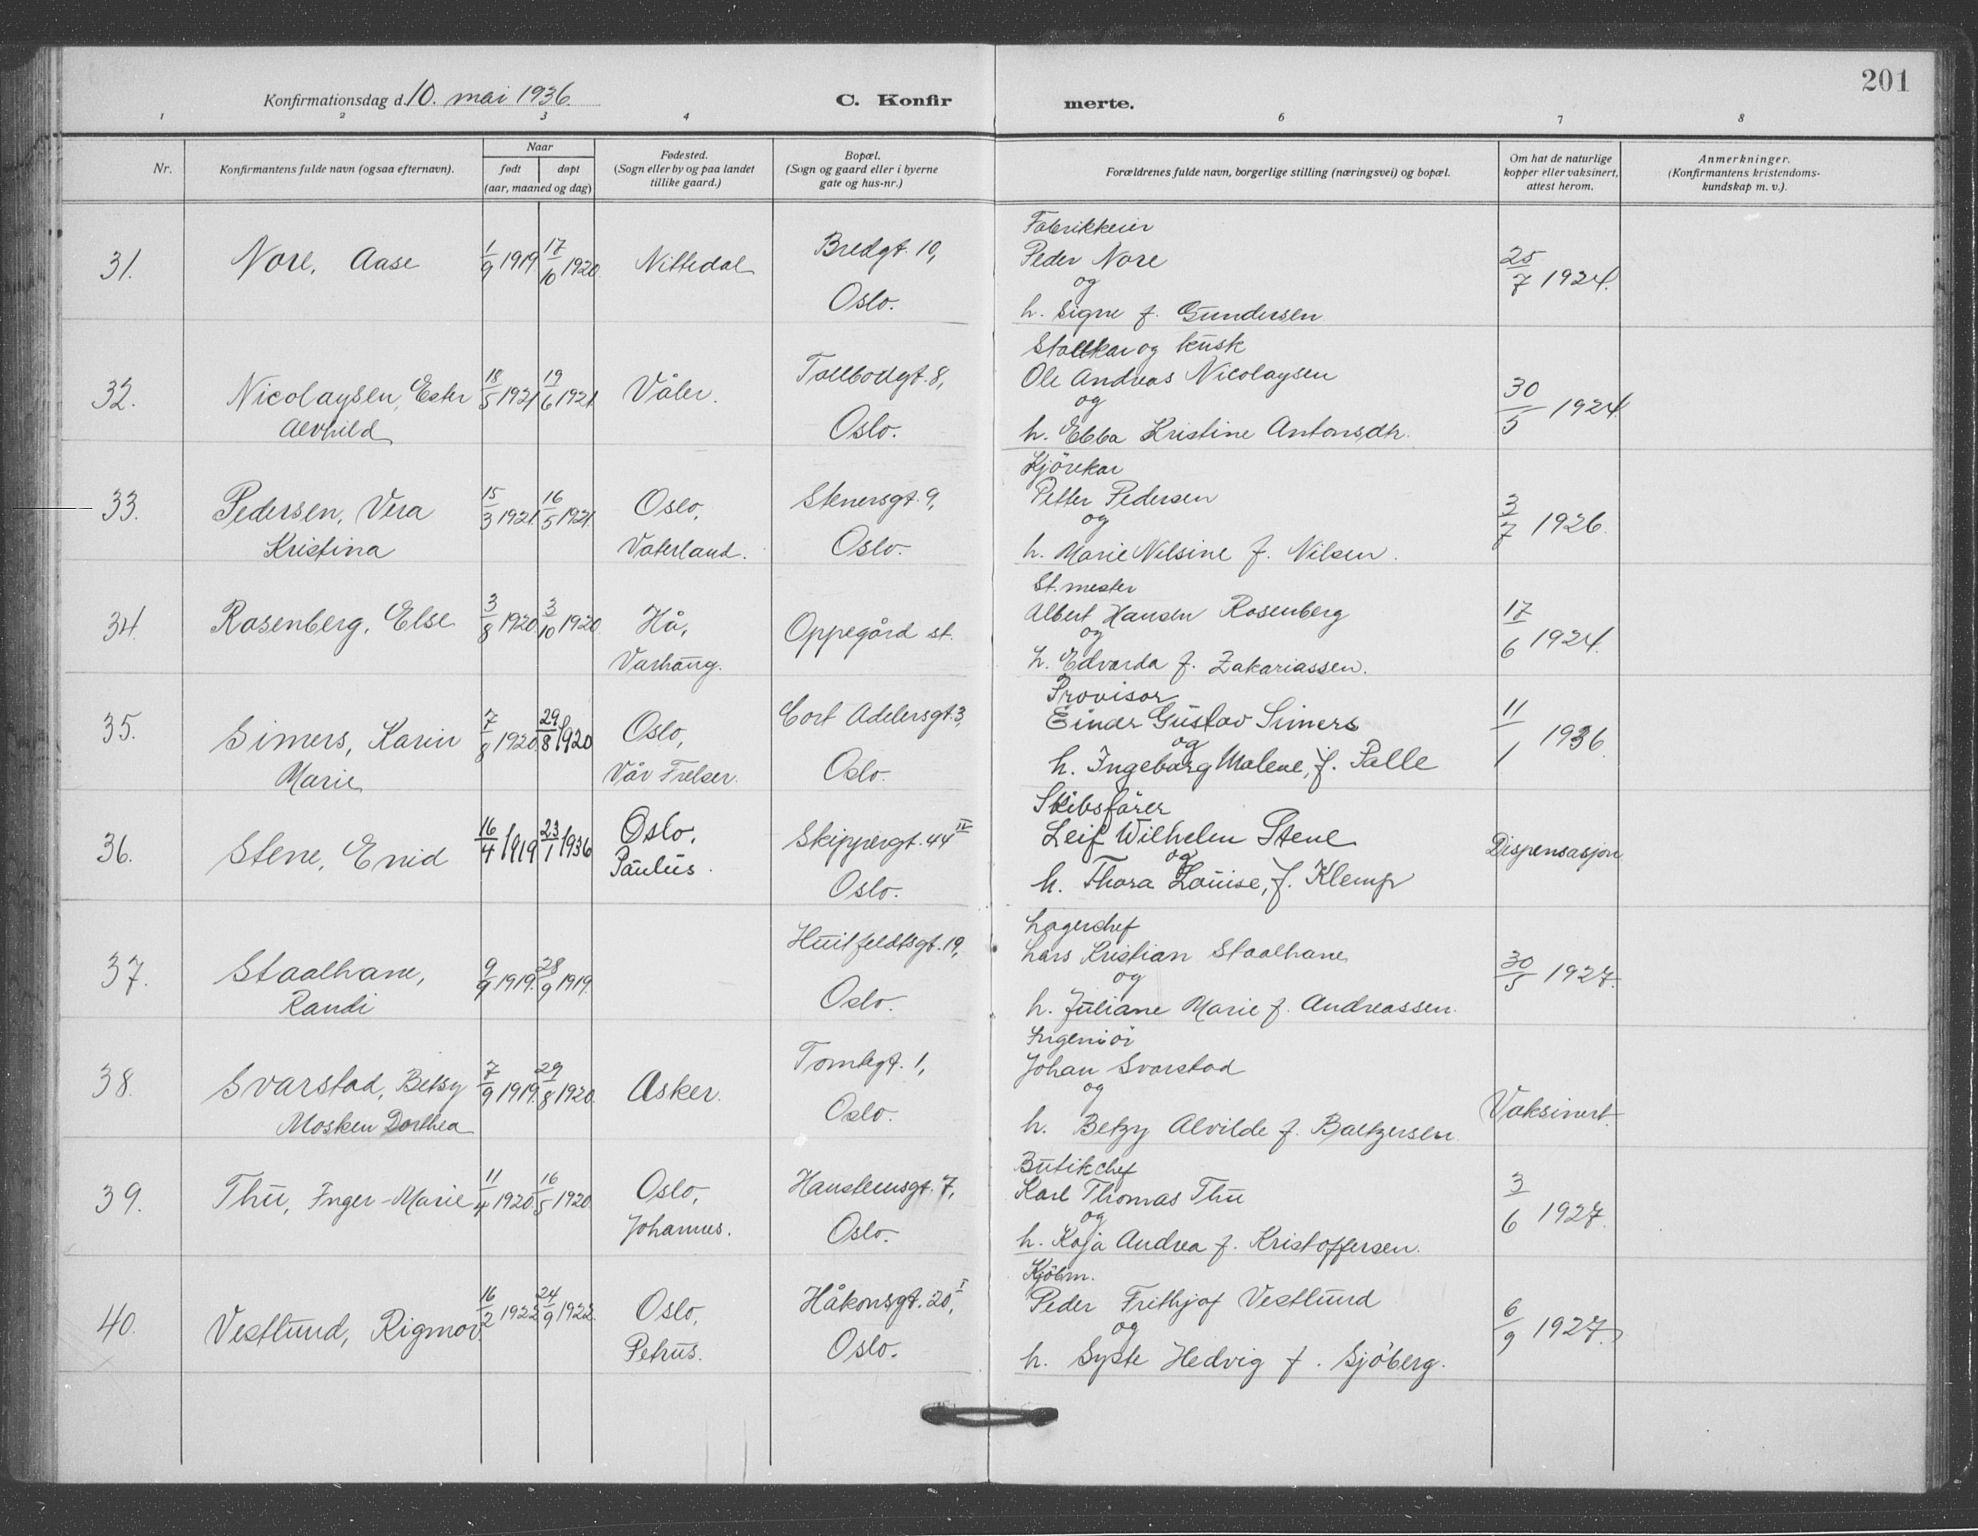 201
Konfirmationsdag d. 10. mai 1936.
C. Konfirmerte.
1 2 3 4 6 7 8
Nr.
Konfirmantens fulde navn (ogsaa efternavn).
Naar
født døpt
(aar, maaned og dag)
Fødested.
(Sogn eller by og paa landet
tillike gaard.)
Bopæl.
(Sogn og gaard eller i byerne
gate og hus-nr.)
Forældrenes fulde navn, borgerlige stilling (næringsvei) og bopæl.
Om hat de naturlige
kopper eller vaksinert,
attest herom.
Anmerkninger.
(Konfirmantens kristendoms-
kundskap m. v.).
Fabrikkeier
31. Nore, Aase 1/9 1919 17/10 1920. Nittedal Bredgt. 10, Peder Nore 25/7 1924.
og
Oslo. h. Signe f. Gundersen
Stallkar og kusk
32. Nicolaysen, Ester 18/5 1921 19/6 1921. Våler. Tollbodgt. 8, Ole Andreas Nicolaysen 30/5 1924
og
Alvhild Oslo. h. Ebba Kristine Antonsdtr.
Kjörekar
33. Pedersen, Vera 15/3 1921. 16/5 1921. Oslo, Stenersgt. 9, Petter Pedersen 3/7 1926.
og
Kristina Vaterland. Oslo. h. Marie Nilsine f. Nilsen.
St. mester
34. Rosenberg, Else 3/8 1920. 3/10 1920 Hå, Oppegård st. Albert Hansen Rosenberg 17/6 1924.
og
Varhaug. h. Edvarda f. Zakariassen.
Provisor
35. Simers, Karin 7/8 1920. 29/8 1920 Oslo, Cort Adelersgt. 3, Einar Gustav Simers 11/1 1936
og
Marie Vår Frelser. Oslo. h. Ingeborg Malene, f. Palle
Skibsfører
36. Stene, Enid 16/4 1919 23/1 1936 Oslo. Skippergt. 44 IV Leif Wilhelm Stene Dispensasjon
og
Paulus. Oslo. h. Thora Louise, f. Klemp
Lagerchef
37. Staalhane, 9/9 1919. 28/9 1919. Huitfeldtsgt. 19, Lars Kristian Staalhane 30/5 1927.
og
Randi Oslo. h. Juliane Marie f. Andreassen.
Ingeniör
38. Svarstad, Betsy 7/9 1919. 29/8 1920. Asker. Tomtegt. 1, Johan Svarstad Vaksinert.
og
Mosken Dorthea Oslo. h. Betzy Alvilde f. Baltzersen.
Butikchef
39. Thu, Inger-Marie 11/4 1920. 16/5 1920. Oslo, Hansteensgt. 7, Karl Thomas Thu 3/6 1927.
og
Johannes. Oslo. h. Kaja Andrea f. Kristoffersen.
Kjöbm.
40. Vestlund, Rigmor 16/2 1922 24/9 1922. Oslo, Håkonsgt. 20 I, Peder Frithjof Vestlund 6/9 1927.
og
Petrus. Oslo. h. Syste Hedvig f. Sjöberg.